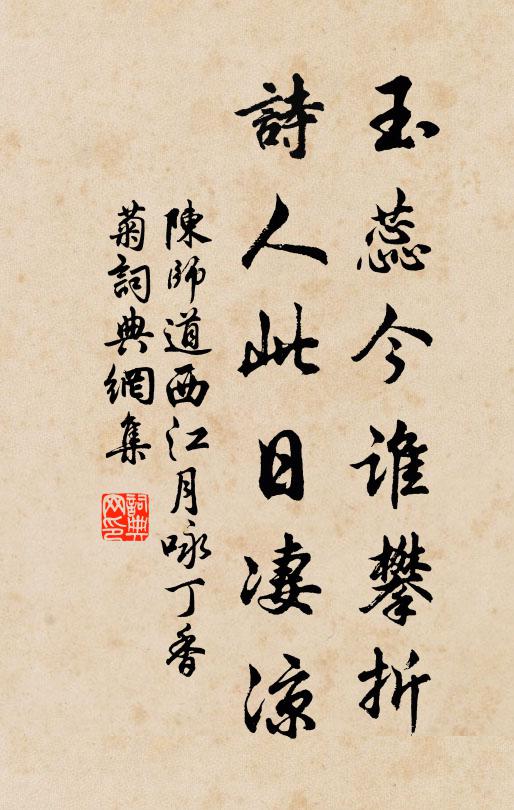 玉蕊今誰攀折
詩人此日凄涼
陳師道西江月咏丁香
菊詞典網集
詞典網印